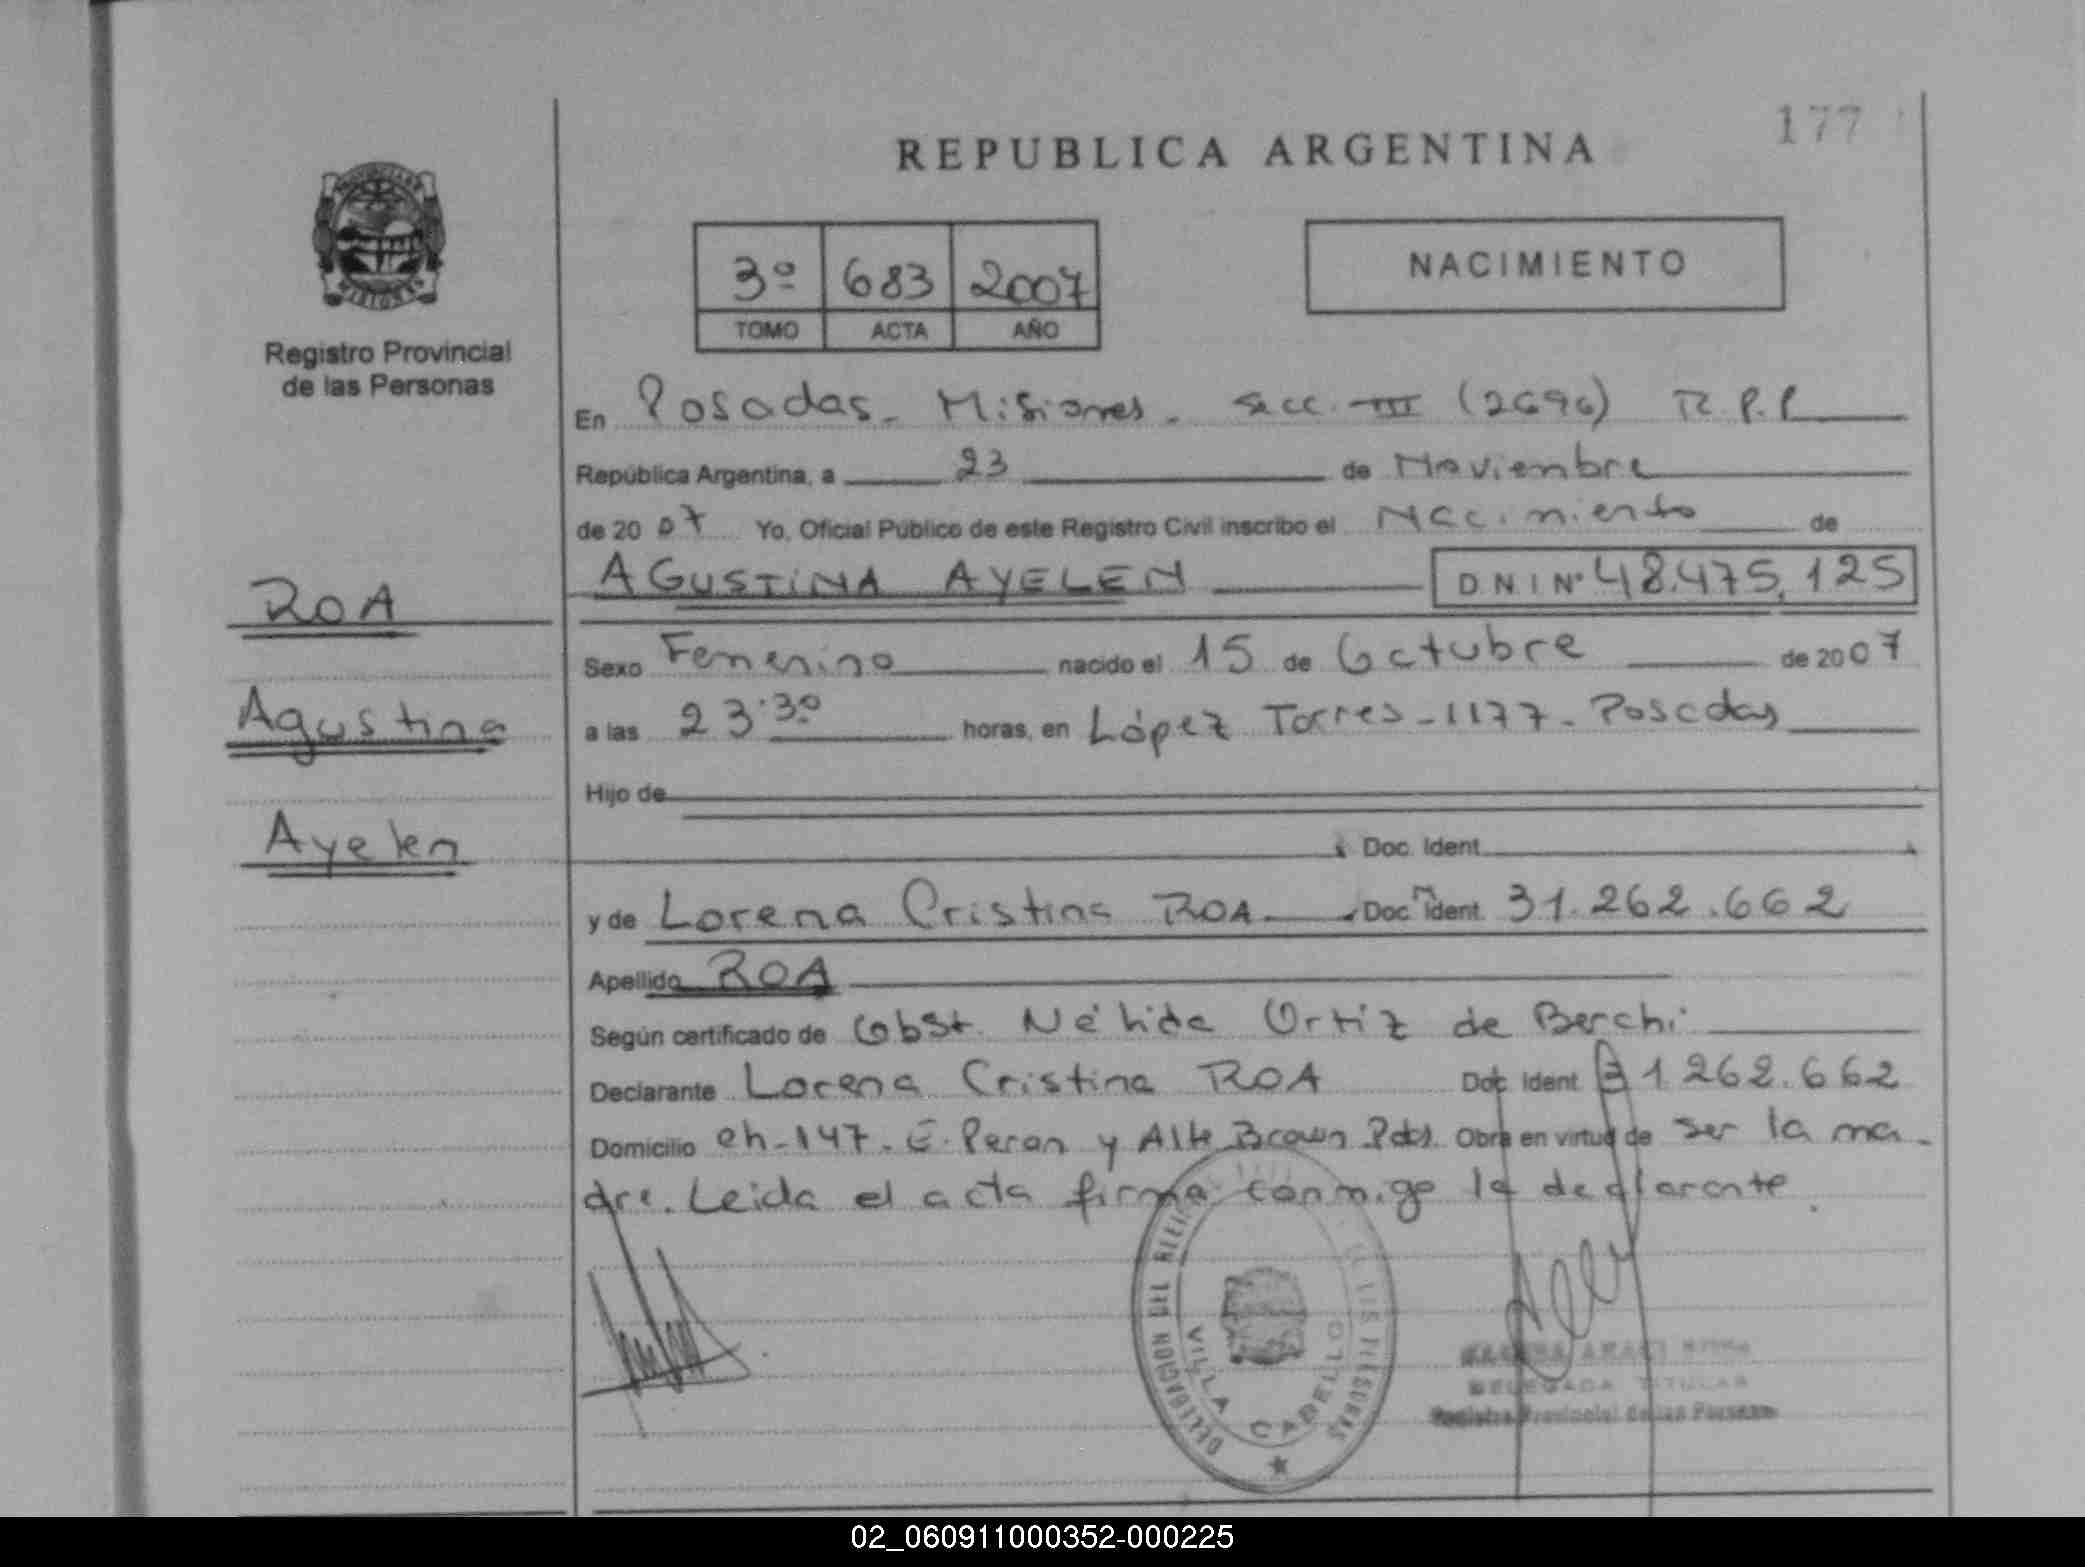 177
REPUBLICA ARGENTINA
3º 683 2007
TOMO ACTA AÑO
NACIMIENTO
MISIONES
Registro Provincial
de las Personas
En Posadas - Misiones - Secc. III (2696) R.P.P
República Argentina, a 23 de Noviembre
de 2007 Yo, Oficial Público de este Registro Civil inscribo el Nacimiento de
AGUSTINA AYELEN D N I Nº 48.475.125
ROA
Agustina
Ayelen
Sexo Femenino nacido el 15 de Octubre de 2007
a las 23:30 horas, en López Torres - 1177 - Posadas
Hijo de
Doc. Ident
y de Lorena Cristina ROA Doc. Ident. 31.262.662
Apellido ROA
Según certificado de Obst. Nélida Ortiz de Berchi
Declarante Lorena Cristina ROA Doc Ident 31.262.662
Domicilio ch-147. E. Peron y Alte Brown Pdas. Obra en virtud de ser la ma-
dre. Leida el acta firma conmigo la declarante.
DELEGACION DEL
VILLA CABELLO
DELEGADA TITULAR
Registro Provincial de las Personas
02_060911000352-000225